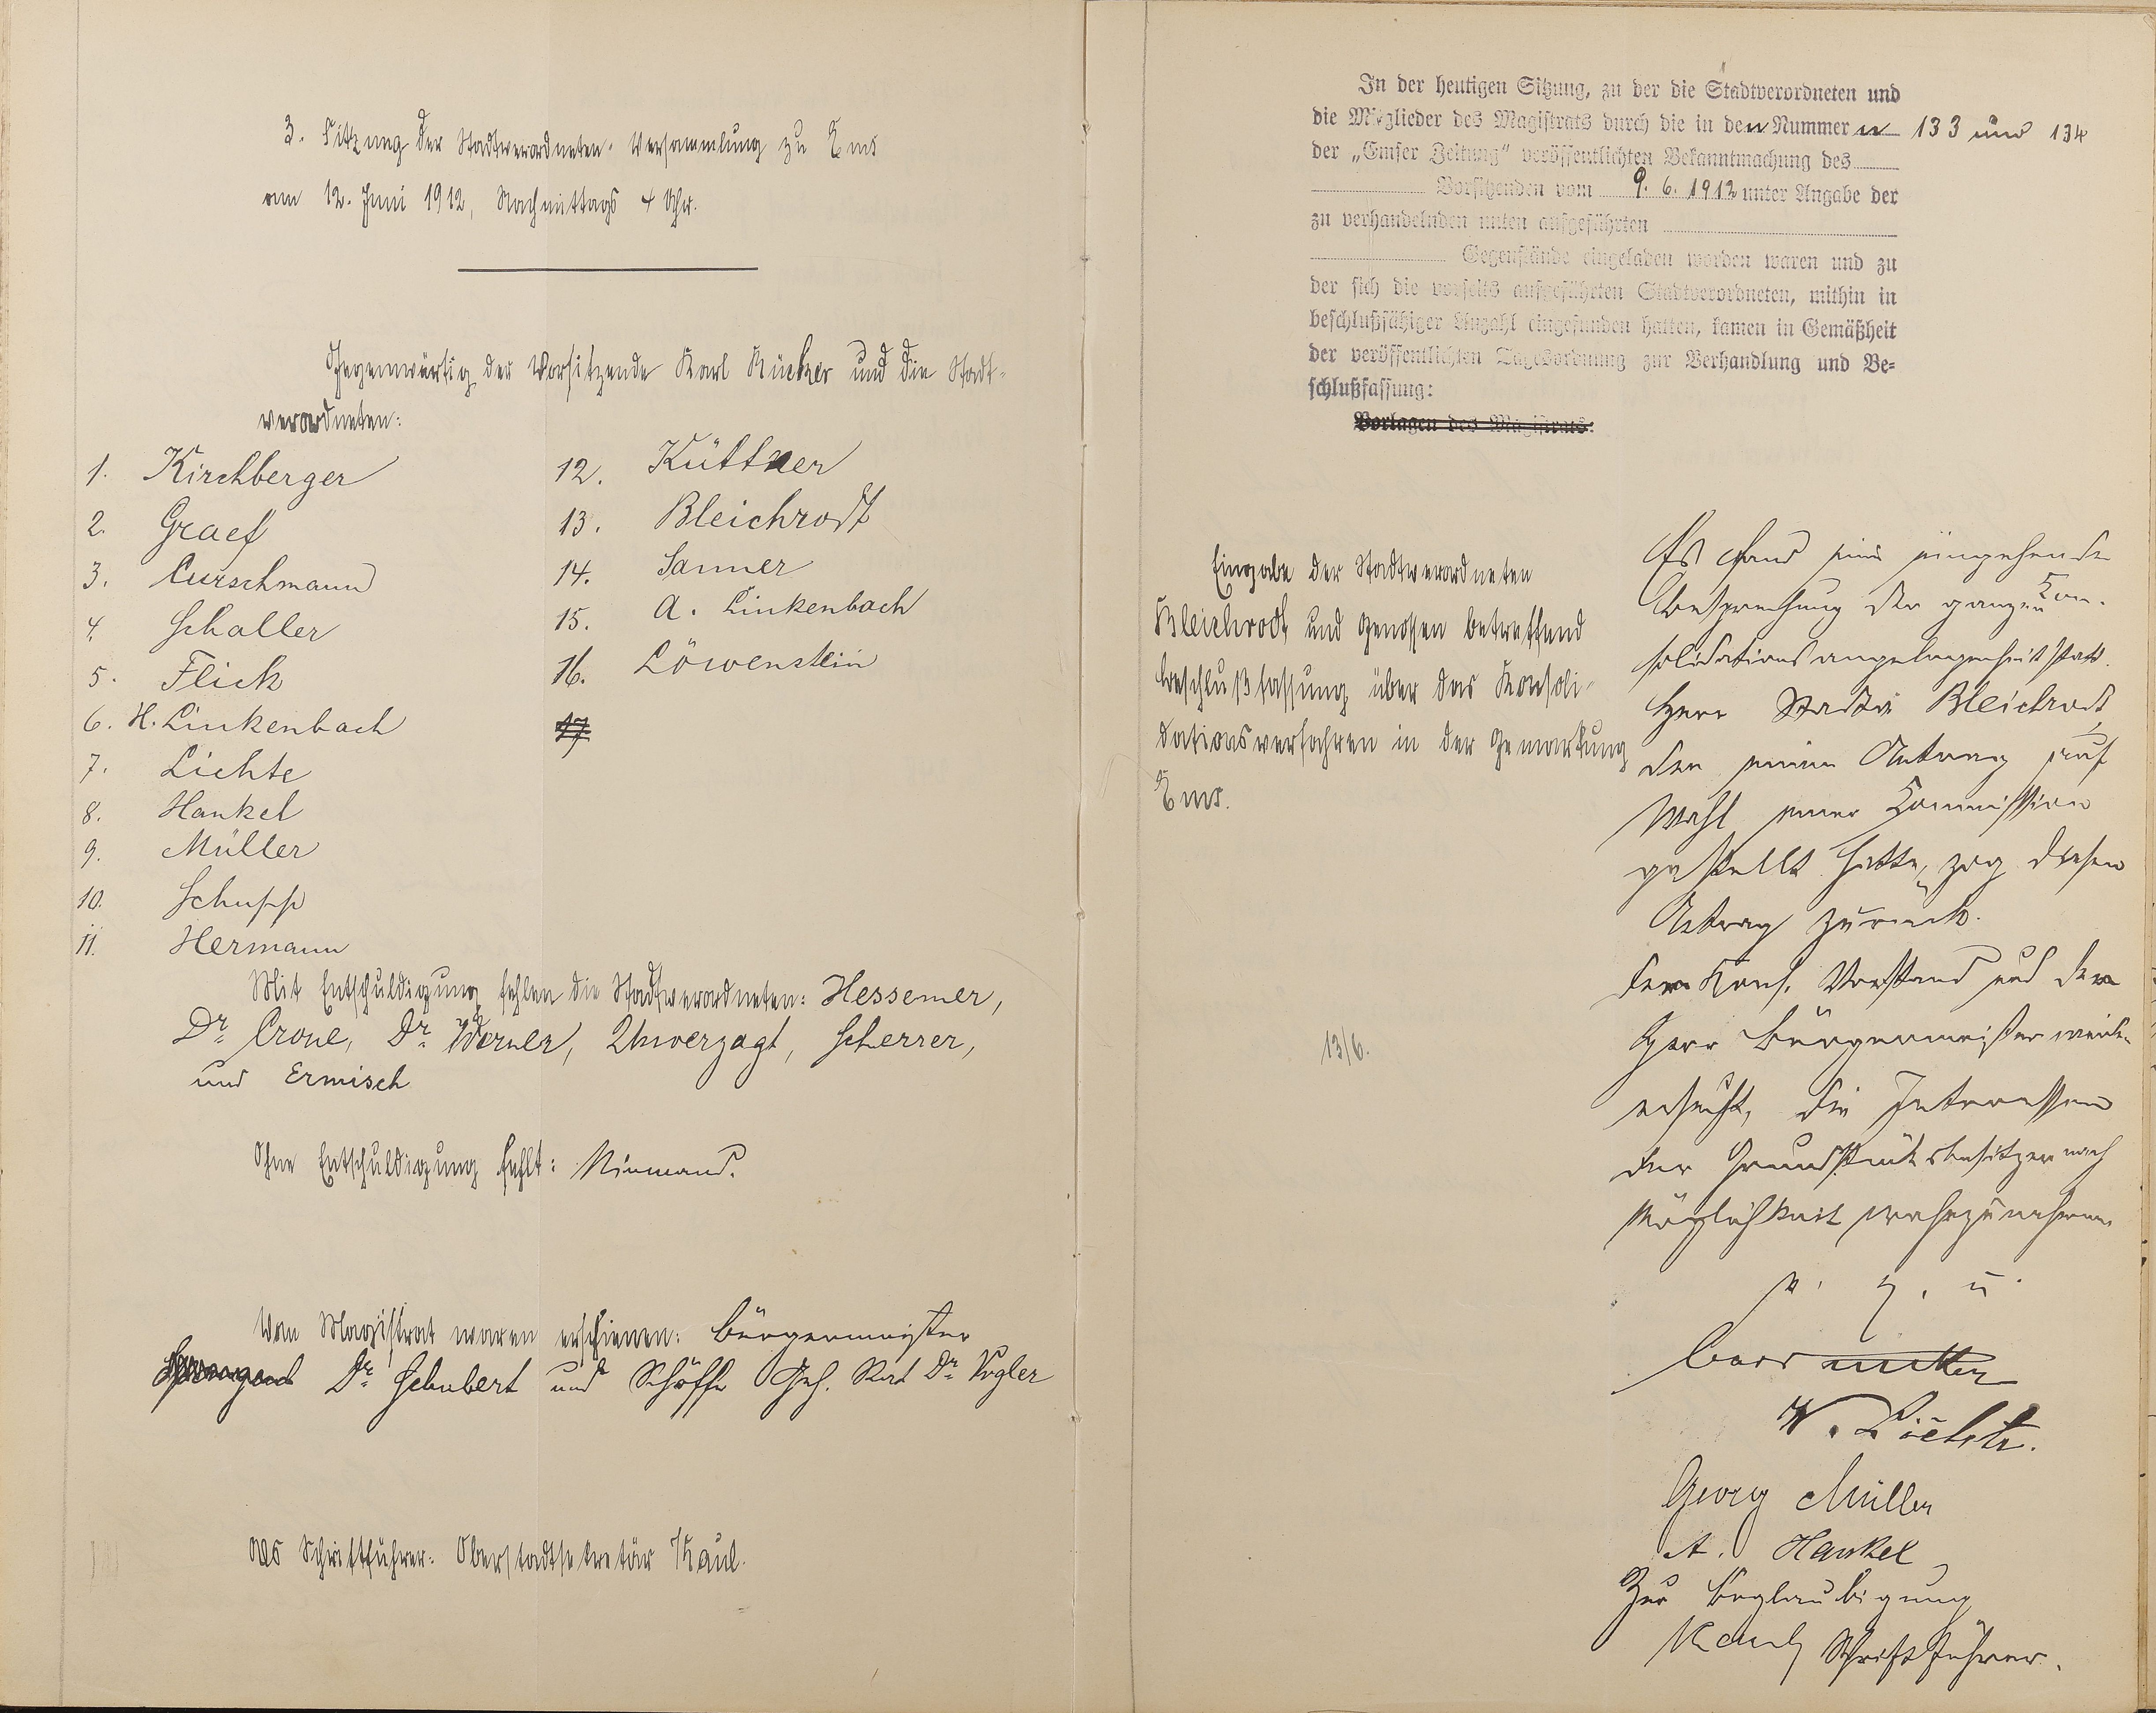 3. Sitzung der Stadtverordneten-Versammlung zu Ems
am 12. Juni 1912, Nachmittags 4 Uhr.
Gegenwärtig der Vorsitzende Karl Rücker und die Stadt-
verordneten:
1. Kirchberger
2. Graef
3. Curschmann
4. Schaller
5. Flick
6. H. Linkenbach
7. Lichte
8. Hankel
9. Müller
10. Schupp
11. Hermann
12. Küttner
13. Bleichrodt
14. Sanner
15. A. Linkenbach
16. Löwenstein
17
Mit Entschuldigung fehlen die Stadtverordneten: Hessemer,
Dr. Crone, Dr. Werner, Unverzagt, Scherrer,
und Ermisch
Ohne Entschuldigung fehlt: Niemand.
Vom Magistrat waren erschienen: Bürgermeister
Dr. Schubert und Schöffe Geh. Rat Dr. Vogler
Als Schriftführer: Oberstadtsekretär Kaul.
In der heutigen Sitzung, zu der die Stadtverordneten und
die Mitglieder des Magistrats durch die in den Nummern 133 und 134
der „Emser Zeitung" veröffentlichten Bekanntmachung des
Vorsitzenden vom 9. 6. 1912 unter Angabe der
zu verhandelnden unten aufgeführten
Gegenstände eingeladen worden waren und zu
der sich die vorseits aufgeführten Stadtverordneten, mithin in
beschlußfähiger Anzahl eingefunden hatten, kamen in Gemäßheit
der veröffentlichten Tagesordnung zur Verhandlung und Be-
schlußfassung:
Vorlagen des Magistrats:
Eingabe der Stadtverordneten
Bleichrodt und Genossen betreffend
Beschlußfassung über das Konsoli-
dationsverfahren in der Gemarkung
Ems.
13/6.
Es fand eine eingehende
Besprechung der ganzen Kon-
solidationsangelegenheit statt.
Herr Stadtv. Bleichrodt,
der einen Antrag auf
Wahl einer Kommission
gestellt hatte, zog diesen
Antrag zurück.
Der Kons. Vorstand und der
Herr Bürgermeister werden
ersucht, die Interessen
der Grundstücksbesitzer nach
Möglichkeit wahrzunehmen.
v. g. u.
W. Lichte.
Georg Müller
A. Hankel
Zur Beglaubigung
Kaul, Schriftführer.